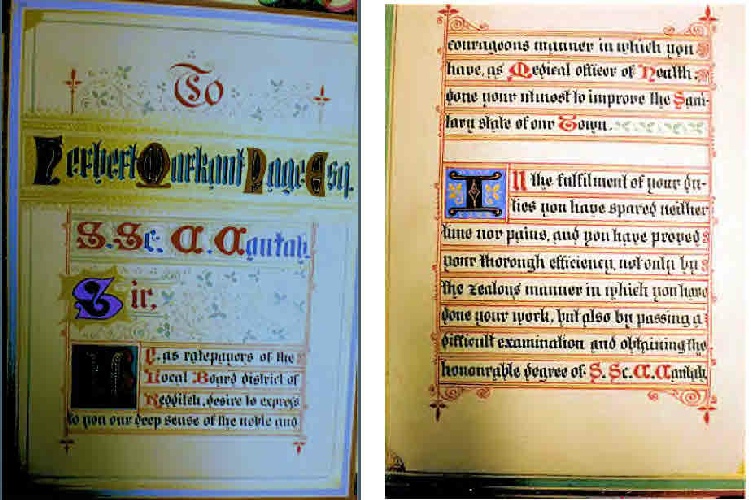 To
Herbert Markant Page Esq.
S. Sc. C. Cantab.
Sir,
We, as ratepayers of the
Local Board district of
Redditch, desire to express
to you our deep sense of the noble and
courageous manner in which you
have, as Medical officer of Health,
done your utmost to improve the Sani-
tary state of our Town.
In the fulfilment of your du-
ties you have spared neither
time nor pains, and you have proved
your thorough efficiency, not only by
the zealous manner in which you have
done your work, but also by passing a
difficult examination and obtaining the
honourable degree of S. Sc. C. Cantab.